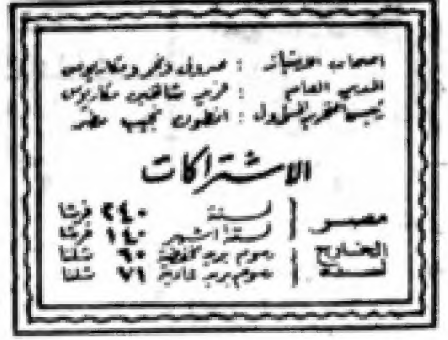 اصحاب الامتياز : صروف ونمر ومكاريوس
المدير العام : فريد شاهين مكاريوس
رئيس التحرير المسؤول : انطون نجيب مطر
الاشتراكات
مصر | لسنة ٢٤٠ قرشا
لستة اشهر ١٤٠ قرشا
الخارج | رسوم بريد مخفضة ٦٠ شلنا
لسنة | رسوم بريد عادية ٧١ شلنا